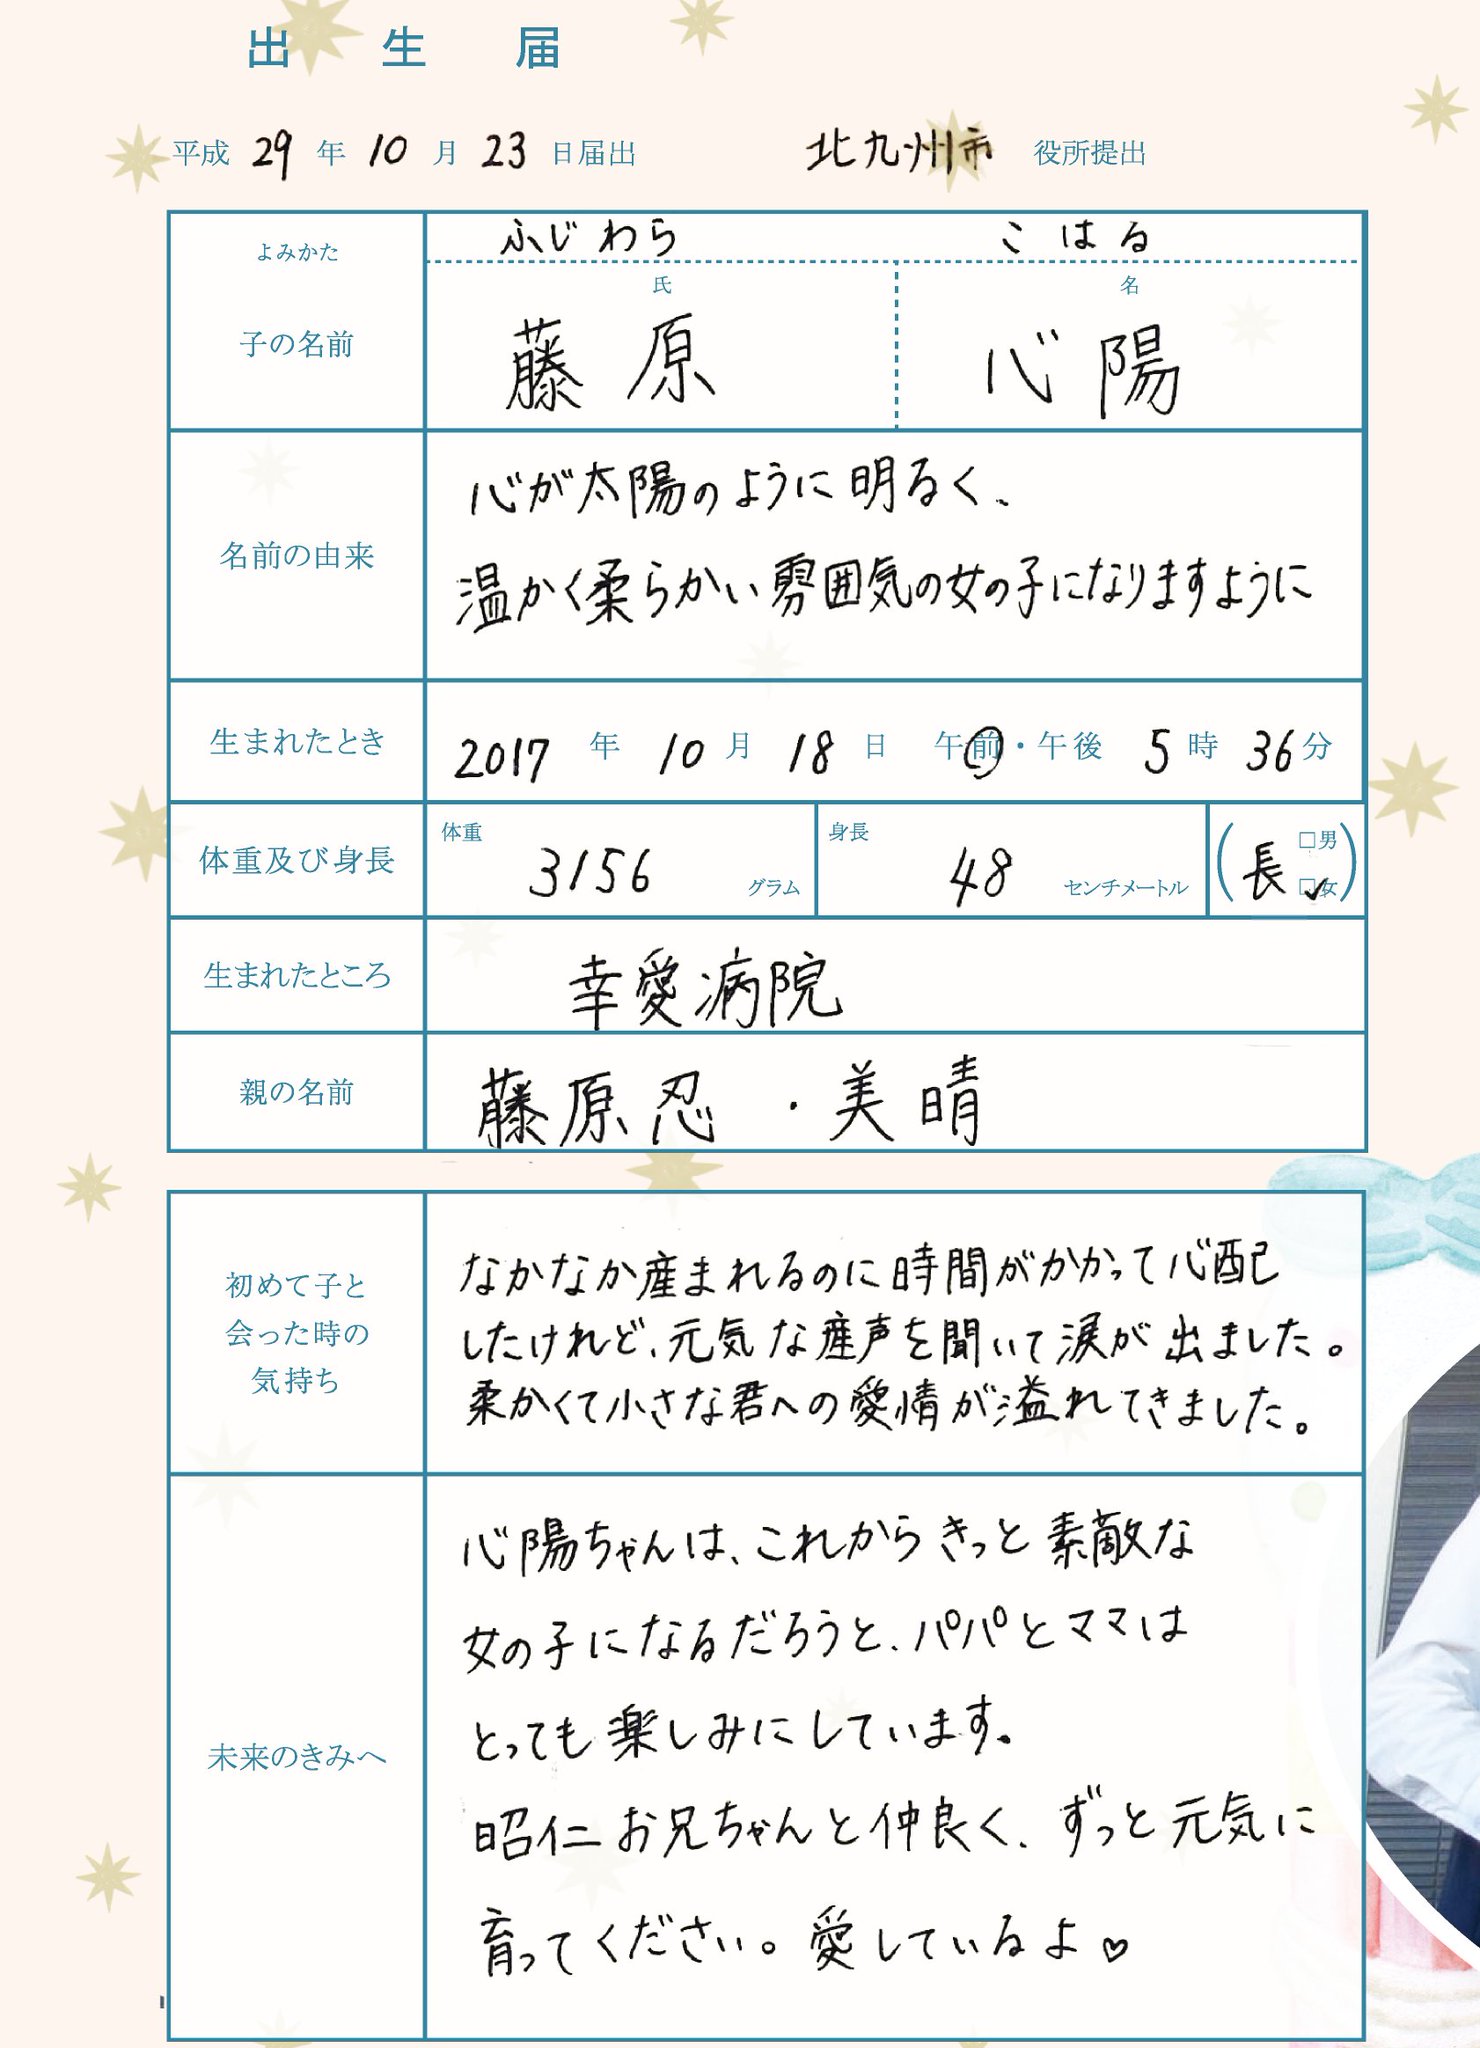 出生届
平成 29 年 10 月 23 日届出 北九州市 役所提出
よみかた ふじわら こはる
氏 名
子の名前 藤原 心陽
心が太陽のように明るく、
名前の由来
温かく柔らかい雰囲気の女の子になりますように
生まれたとき 2017 年 10 月 18 日 午前・午後 5 時 36 分
体重及び身長 体重 3156 グラム 身長 48 センチメートル (長 □男 □女)
生まれたところ 幸愛病院
親の名前 藤原忍・美晴
初めて子と
会った時の
気持ち
なかなか産まれるのに時間がかかって心配
したけれど、元気な産声を聞いて涙が出ました。
柔かくて小さな君への愛情が溢れてきました。
未来のきみへ
心陽ちゃんは、これからきっと素敵な
女の子になるだろうと、パパとママは
とっても楽しみにしています。
昭仁お兄ちゃんと仲良く、ずっと元気に
育ってください。愛しているよ♡